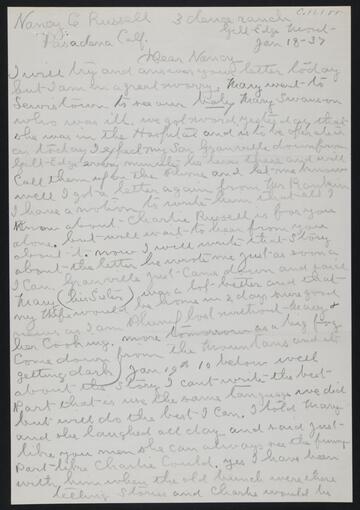 Nancy C Russell 3 dance ranch C.11.1.55
Pasadena Calf. Gilt Edge Mont-
Jan 18-37
Dear Nancy-
I will try and answer your letter today
but I am in a great worry. Mary went to
Lewistown to see our baby Mary Swanson
who was ill. we got word yesterday that
she was in the Hospital and is to be operated
on today I expect my Son Granville down from
Gilt-Edge every minute he lives there and will
Call them up on the Phone and let me know
well I got a letter again from Mr Rankin
I have a notion to write him that all I
Know about Charlie Russell is for you
alone. but will wait to hear from you
about it. now I will write that Story
about the letter he wrote me just as soon as
I can. Granville just Came down and said
Mary (his Sister) was a lot better and that
my Wife would be home in 2 days sure good
news as I am Plumb lost without Mary &
her Cooking. more tomorrow as a big fog
Come down from the Mountains and its
getting dark) Jan 19th 10 below well
about the Story I cant write the best
Part that is use the same language we did
but will do the best I can. I told Mary
and she laughed all day and said just
like you men she can always see the funny
part like Charlie Could. yes I have been
with him when the old bunch were there
telling Stories and Charlie would be